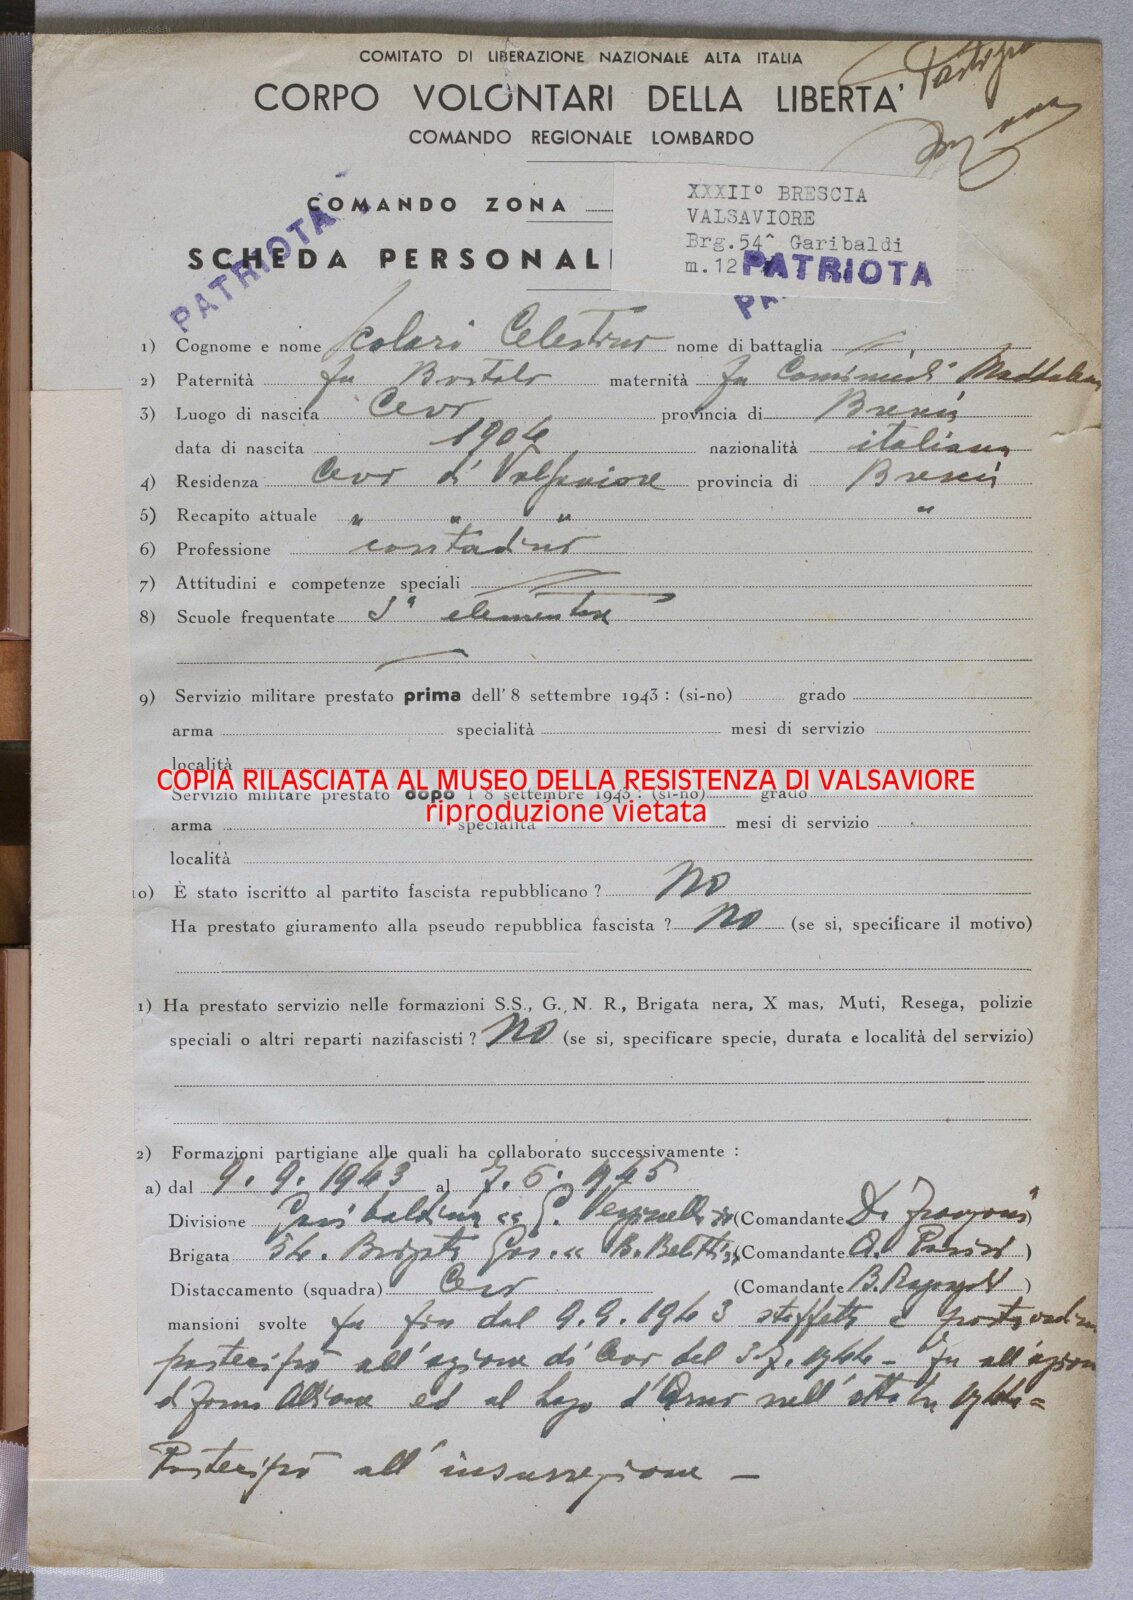 COMITATO DI LIBERAZIONE NAZIONALE ALTA ITALIA
CORPO VOLONTARI DELLA LIBERTA'
COMANDO REGIONALE LOMBARDO
COMANDO ZONA
XXXII° BRESCIA
VALSAVIORE
Brg.54^ Garibaldi
m.12
PATRIOTA
PATRIOTA
SCHEDA PERSONAL
1) Cognome e nome Scolari Celestino nome di battaglia
2) Paternità fu Bortolo maternità fu Comincioli Maddalena
3) Luogo di nascita Cevo provincia di Brescia
data di nascita 1904 nazionalità italiana
4) Residenza Cevo di Valsaviore provincia di Brescia
5) Recapito attuale " " " "
6) Professione contadino
7) Attitudini e competenze speciali
8) Scuole frequentate elementare
9) Servizio militare prestato prima dell'8 settembre 1943: (si-no) grado
arma specialità mesi di servizio
località
COPIA RILASCIATA AL MUSEO DELLA RESISTENZA DI VALSAVIORE
Servizio militare prestato dopo l'8 settembre 1943: (si-no) grado
riproduzione vietata
arma specialità mesi di servizio
località
10) È stato iscritto al partito fascista repubblicano? No
Ha prestato giuramento alla pseudo repubblica fascista? No (se si, specificare il motivo)
1) Ha prestato servizio nelle formazioni S.S., G. N. R., Brigata nera, X mas, Muti, Resega, polizie
speciali o altri reparti nazifascisti? No (se si, specificare specie, durata e località del servizio)
2) Formazioni partigiane alle quali ha collaborato successivamente:
a) dal 9.9.1943 al 7.5.1945
Divisione Garibaldina (Comandante )
Brigata 54. Brigata Gar. "B. Belotti" (Comandante A. Parisi)
Distaccamento (squadra) Cevo (Comandante B. )
mansioni svolte fu fin dal 9.9.1943 staffetta e
partecipò all'azione di Cevo del 3.7.1944 - fu all'azione
di Forno Allione ed al Lago d'Arno nell' 1944 =
Partecipò all'insurrezione -